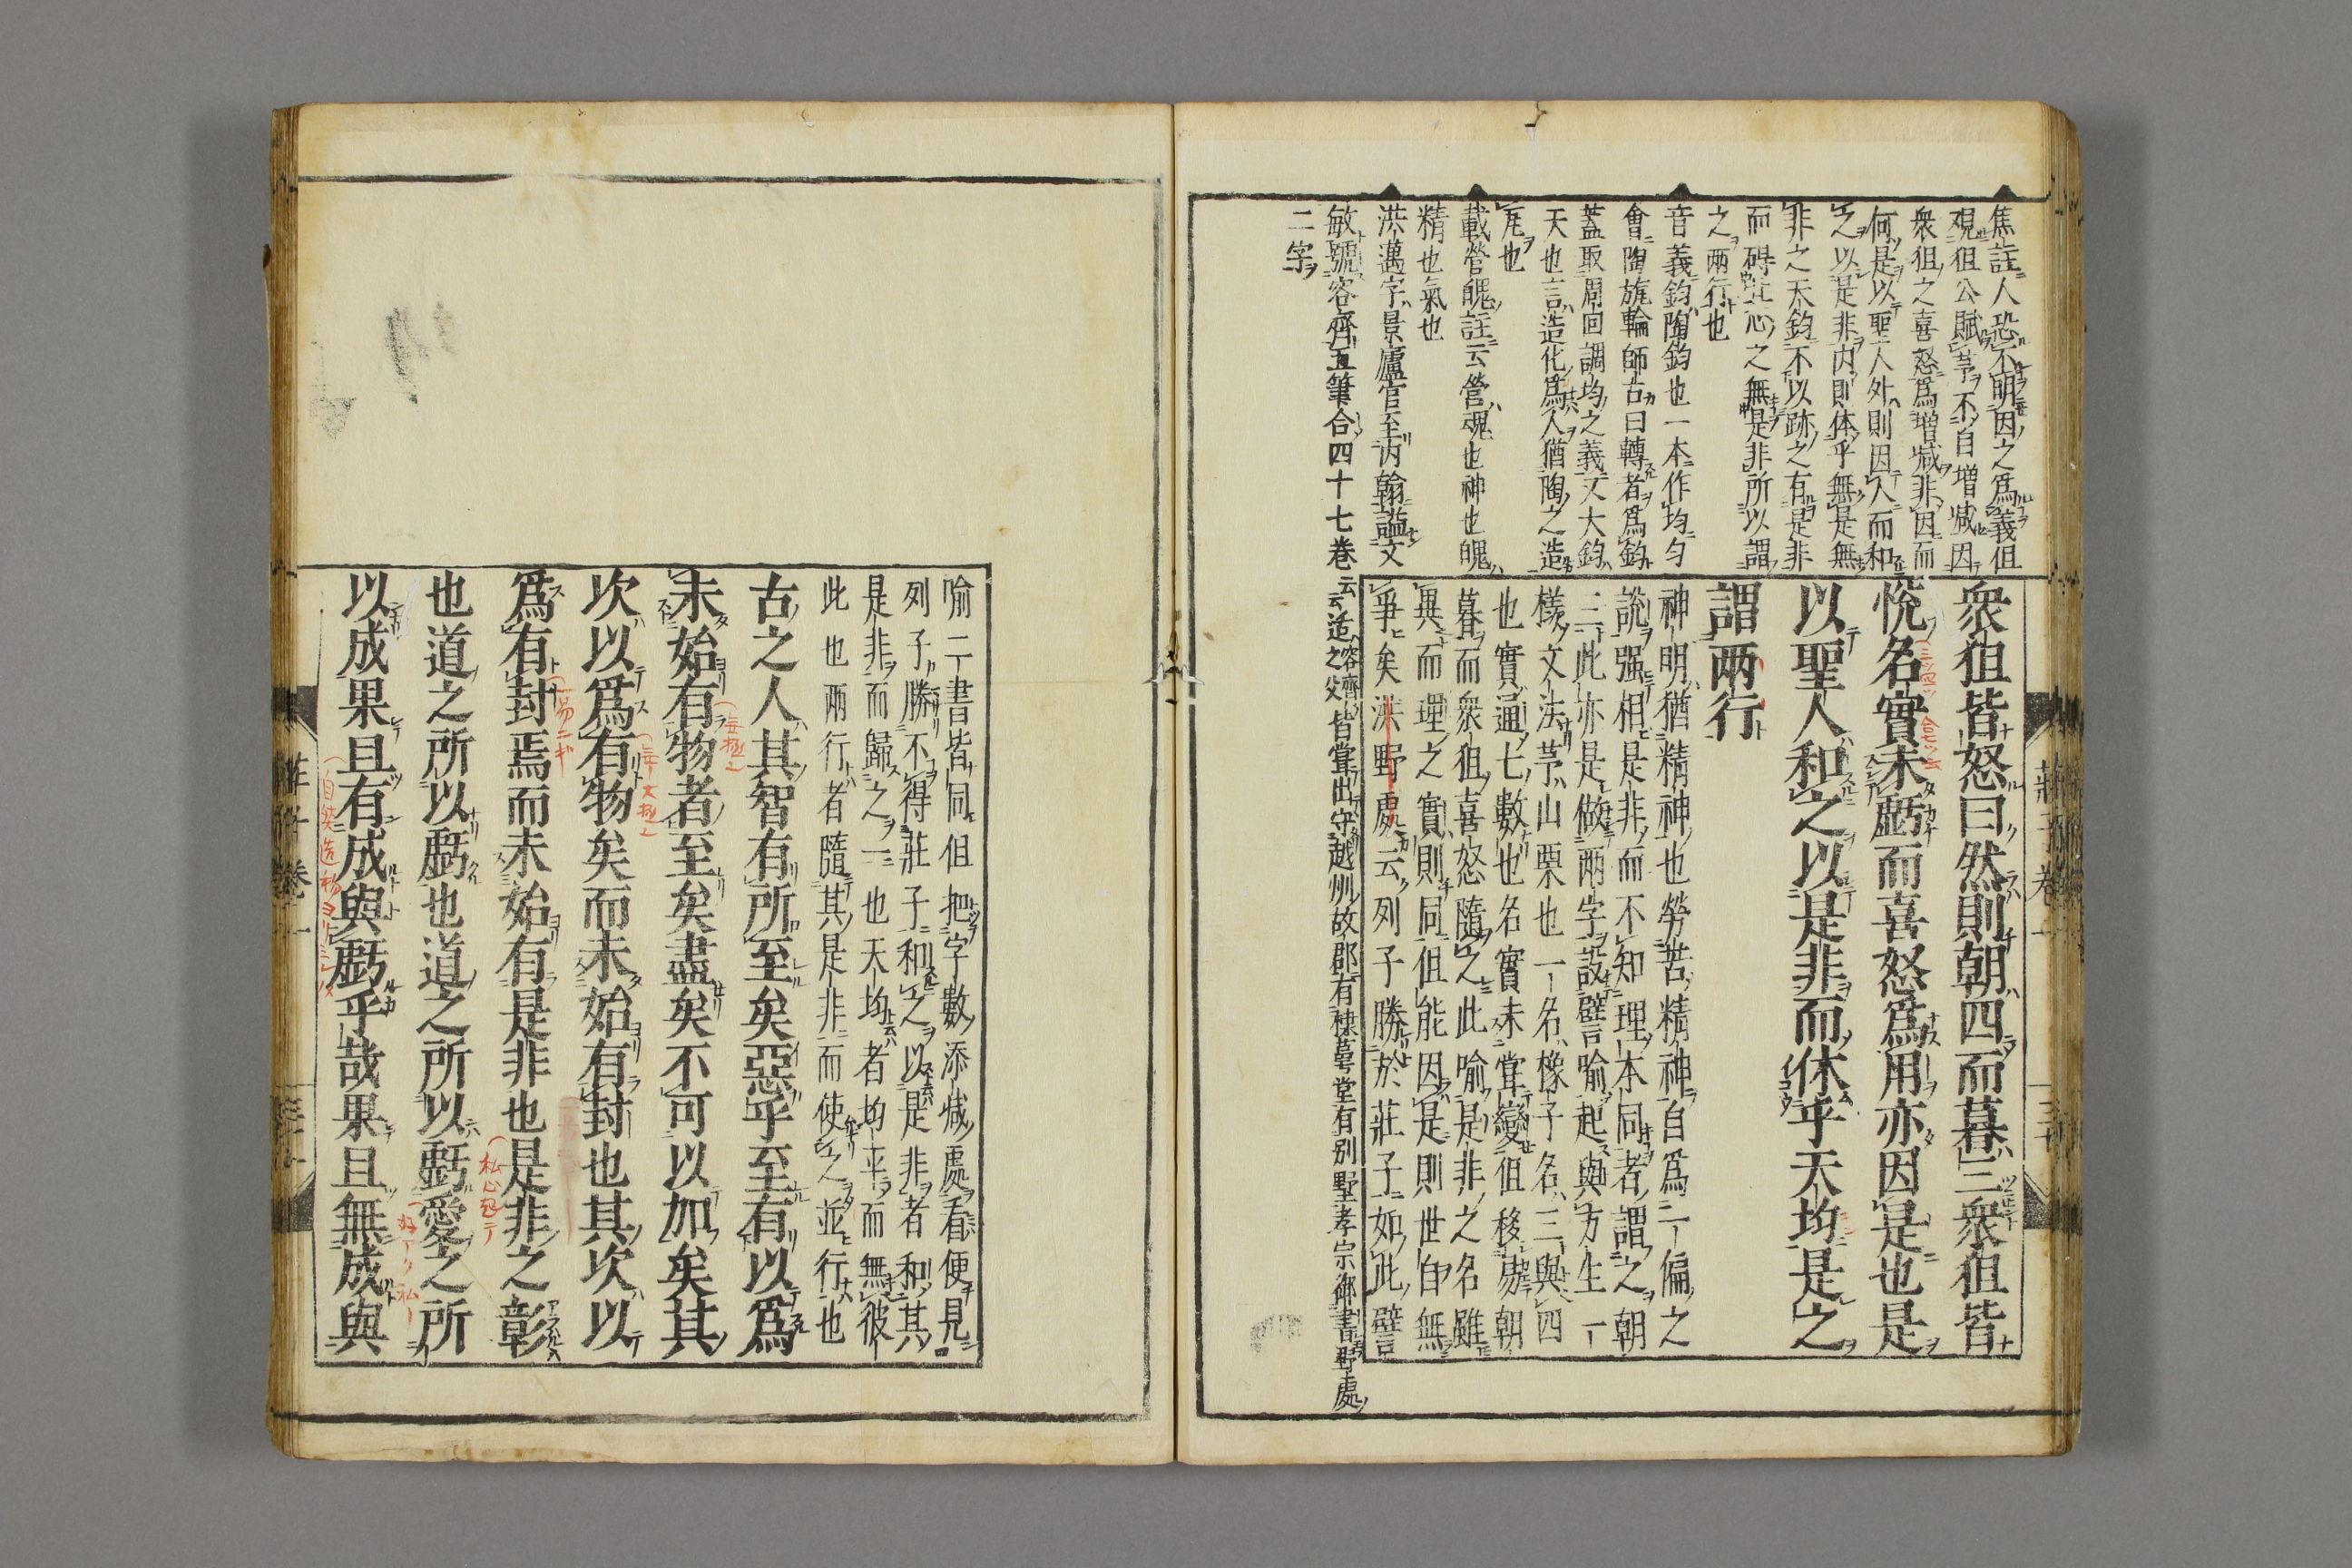 焦註人恐不明因之爲義狙
覌狙公賦芧不自増减因
衆狙之喜怒爲増减非因而
何是以聖人外則因人而和
之以是非内則体乎無是無
非之天鈞不以跡之有是非
而碍心之無是非所以謂
之兩行也
音義鈞陶鈞也一本作均勻
會陶旊輪師古曰轉者爲鈞
蓋取周回調均之義又大鈞
天也言造化爲人猶陶之造
瓦也
載營魄註云營魂也神也魄
精也氣也
洪邁字景廬官至内翰謚文
敏號容齊五筆合四十七卷云云适容齊之父皆甞出守越州故郡有棣萼堂有别墅孝宗御書野處
二字
衆狙皆怒曰然則朝四而暮三衆狙皆
悦名實未虧而喜怒爲用亦因是也是
以聖人和之以是非而休乎天均是之
謂兩行
神明猶精神也勞苦精神自爲一偏之
説强相是非而不知理本同者謂之朝
三此亦是做兩字設譬喻起與方生一
樣文法芧山栗也一名橡子名三與四
也實通七數也名實未甞變但移易朝
暮而衆狙喜怒隨之此喻是非之名雖
異而理之實則同但能因是則世自無
爭矣洪野處云列子勝於莊子如此譬
莊子卷一
三十
喻二書皆同但把字數添减處看便見
列子勝不得莊子和之以是非者和其
是非而歸之一也天均者均平而無彼
此也兩行者隨其是非而使之並行也
古之人其智有所至矣惡乎至有以爲
未始有物者至矣盡矣不可以加矣其
次以爲有物矣而未始有封也其次以
爲有封焉而未始有是非也是非之彰
也道之所以虧也道之所以虧愛之所
以成果且有成與虧乎哉果且無成與
莊子卷一